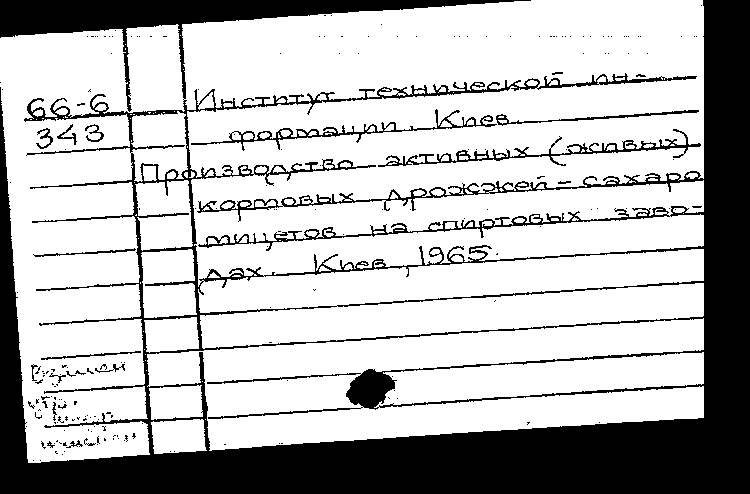 66-6
343
Институт технической ин-
формации. Киев.
Производство активных (живых)
кормовых дрожжей-сахаро
мицетов на спиртовых заво-
дах. Киев, 1965.
Взамен